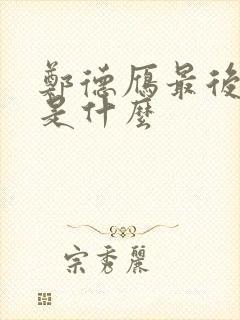 鄭德雁最後
是什麼
宗秀麗